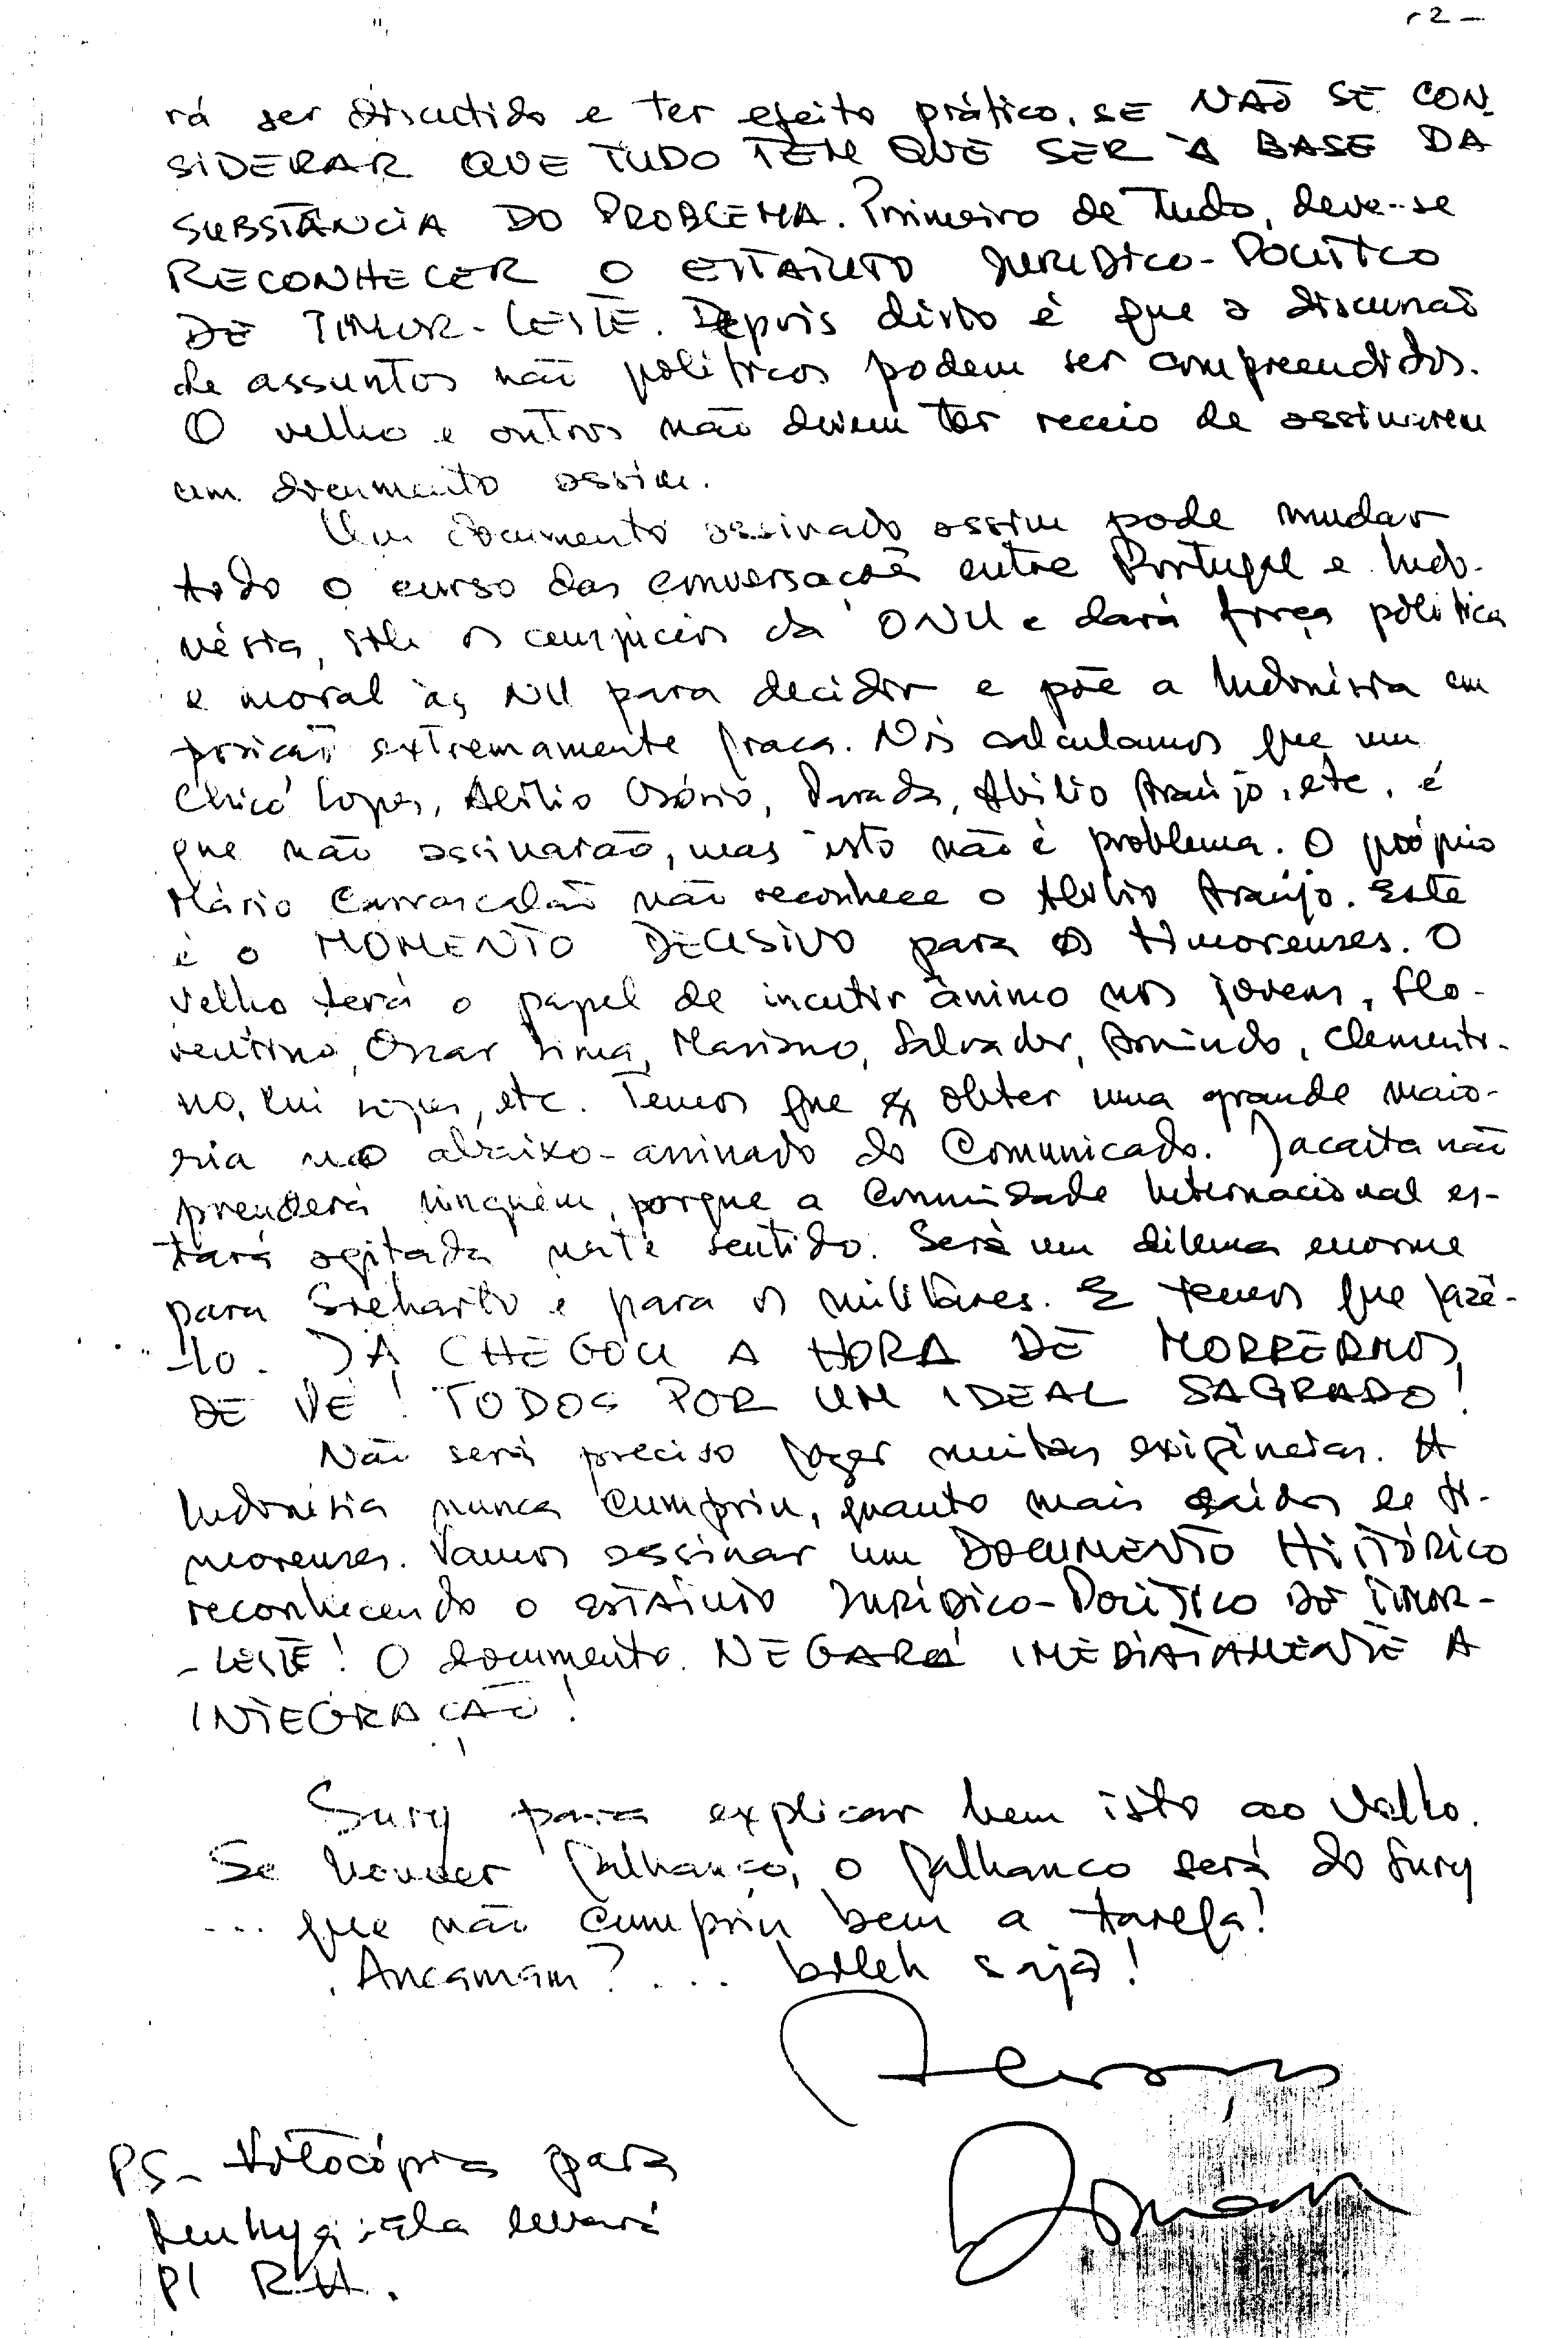 - 2 -
rá ser discutido e ter efeito prático, SE NÃO SE CON-
SIDERAR QUE TUDO TEM QUE SER À BASE DA
SUBSTÂNCIA DO PROBLEMA. Primeiro de tudo, deve-se
RECONHECER O ESTATUTO JURIDICO-POLITICO
DE TIMOR-LESTE. Depois disto é que a discussão
de assuntos não políticos podem ser compreendidos.
O velho e outros não devem ter receio de assinarem
um documento assim.
Um documento assinado assim pode mudar
todo o curso das conversações entre Portugal e Indo-
nésia, sob os auspícios da ONU e dará força política
e moral às NU para decidir e põe a Indonésia em
posição extremamente fraca. Nós calculamos que um
Chico Lopes, Abílio Osório, Parada, Abílio Araújo, etc, é
que não assinarão, mas isto não é problema. O próprio
Mário Carrascalão não reconhece o Abílio Araújo. Este
é o MOMENTO DECISIVO para os timorenses. O
velho terá o papel de incutir ânimo nos jovens, Flo-
rentino, Oscar Lima, Mariano, Salvador, Armindo, Clementi-
no, Rui Lopes, etc. Temos que obter uma grande maio-
ria no abaixo-assinado do Comunicado. Jacarta não
prenderá ninguém, porque a Comunidade Internacional es-
tará agitada neste sentido. Será um dilema enorme
para Soeharto e para os militares. E temos que fazê-
-lo. JÁ CHEGOU A HORA DE MORRERMOS
DE PÉ! TODOS POR UM IDEAL SAGRADO!
Não será preciso fazer muitas exigências. A
Indonésia nunca cumpriu, quanto mais saídas de ti-
morenses. Vamos assinar um DOCUMENTO HISTÓRICO
reconhecendo o ESTATUTO JURÍDICO-POLÍTICO DE TIMOR-
-LESTE! O documento NEGARÁ IMEDIATAMENTE A
INTEGRAÇÃO!
Sury para explicar bem isto ao Velho.
Se houver falhanço, o falhanço será do Sury
... que não cumpriu bem a tarefa!
Ancaman? ... boleh saja!
PS- Fotocópia para
levará
p/ R.H.